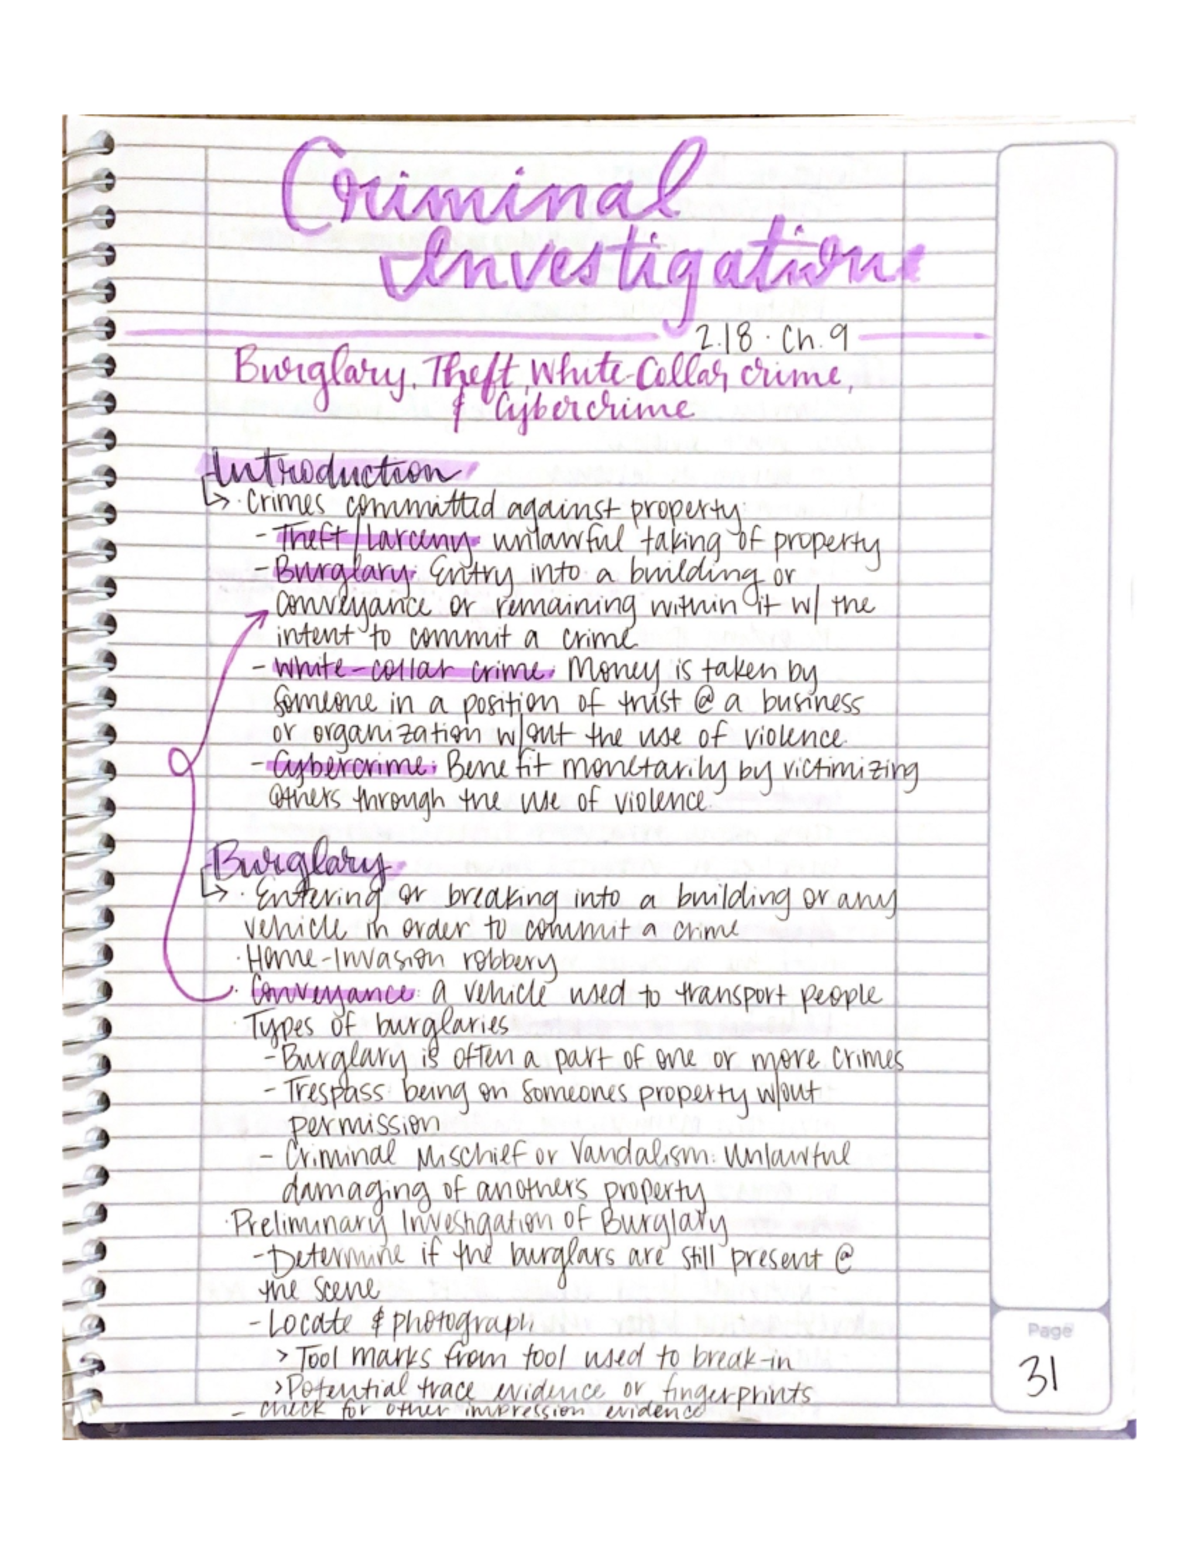 Criminal
Investigation
2.18 · Ch. 9
Burglary, Theft, White-Collar crime,
& Cybercrime
Introduction
↳ · Crimes committed against property
- Theft/Larceny: unlawful taking of property
- Burglary: Entry into a building or
conveyance or remaining within it w/ the
intent to commit a crime
- White-collar crime: Money is taken by
Someone in a position of trust @ a business
or organization w/out the use of violence.
- Cybercrime: Benefit monetarily by victimizing
others through the use of violence.
Burglary
↳ · Entering or breaking into a building or any
vehicle in order to commit a crime
· Home-Invasion robbery
· Conveyance: a vehicle used to transport people
· Types of burglaries
- Burglary is often a part of one or more crimes
- Trespass: being on someones property w/out
permission
- Criminal Mischief or Vandalism: Unlawful
damaging of anothers property
· Preliminary Investigation of Burglary
- Determine if the burglars are still present @
the scene
- Locate & photograph
> Tool marks from tool used to break-in
> Potential trace evidence or fingerprints
- check for other impression evidence
Page
31